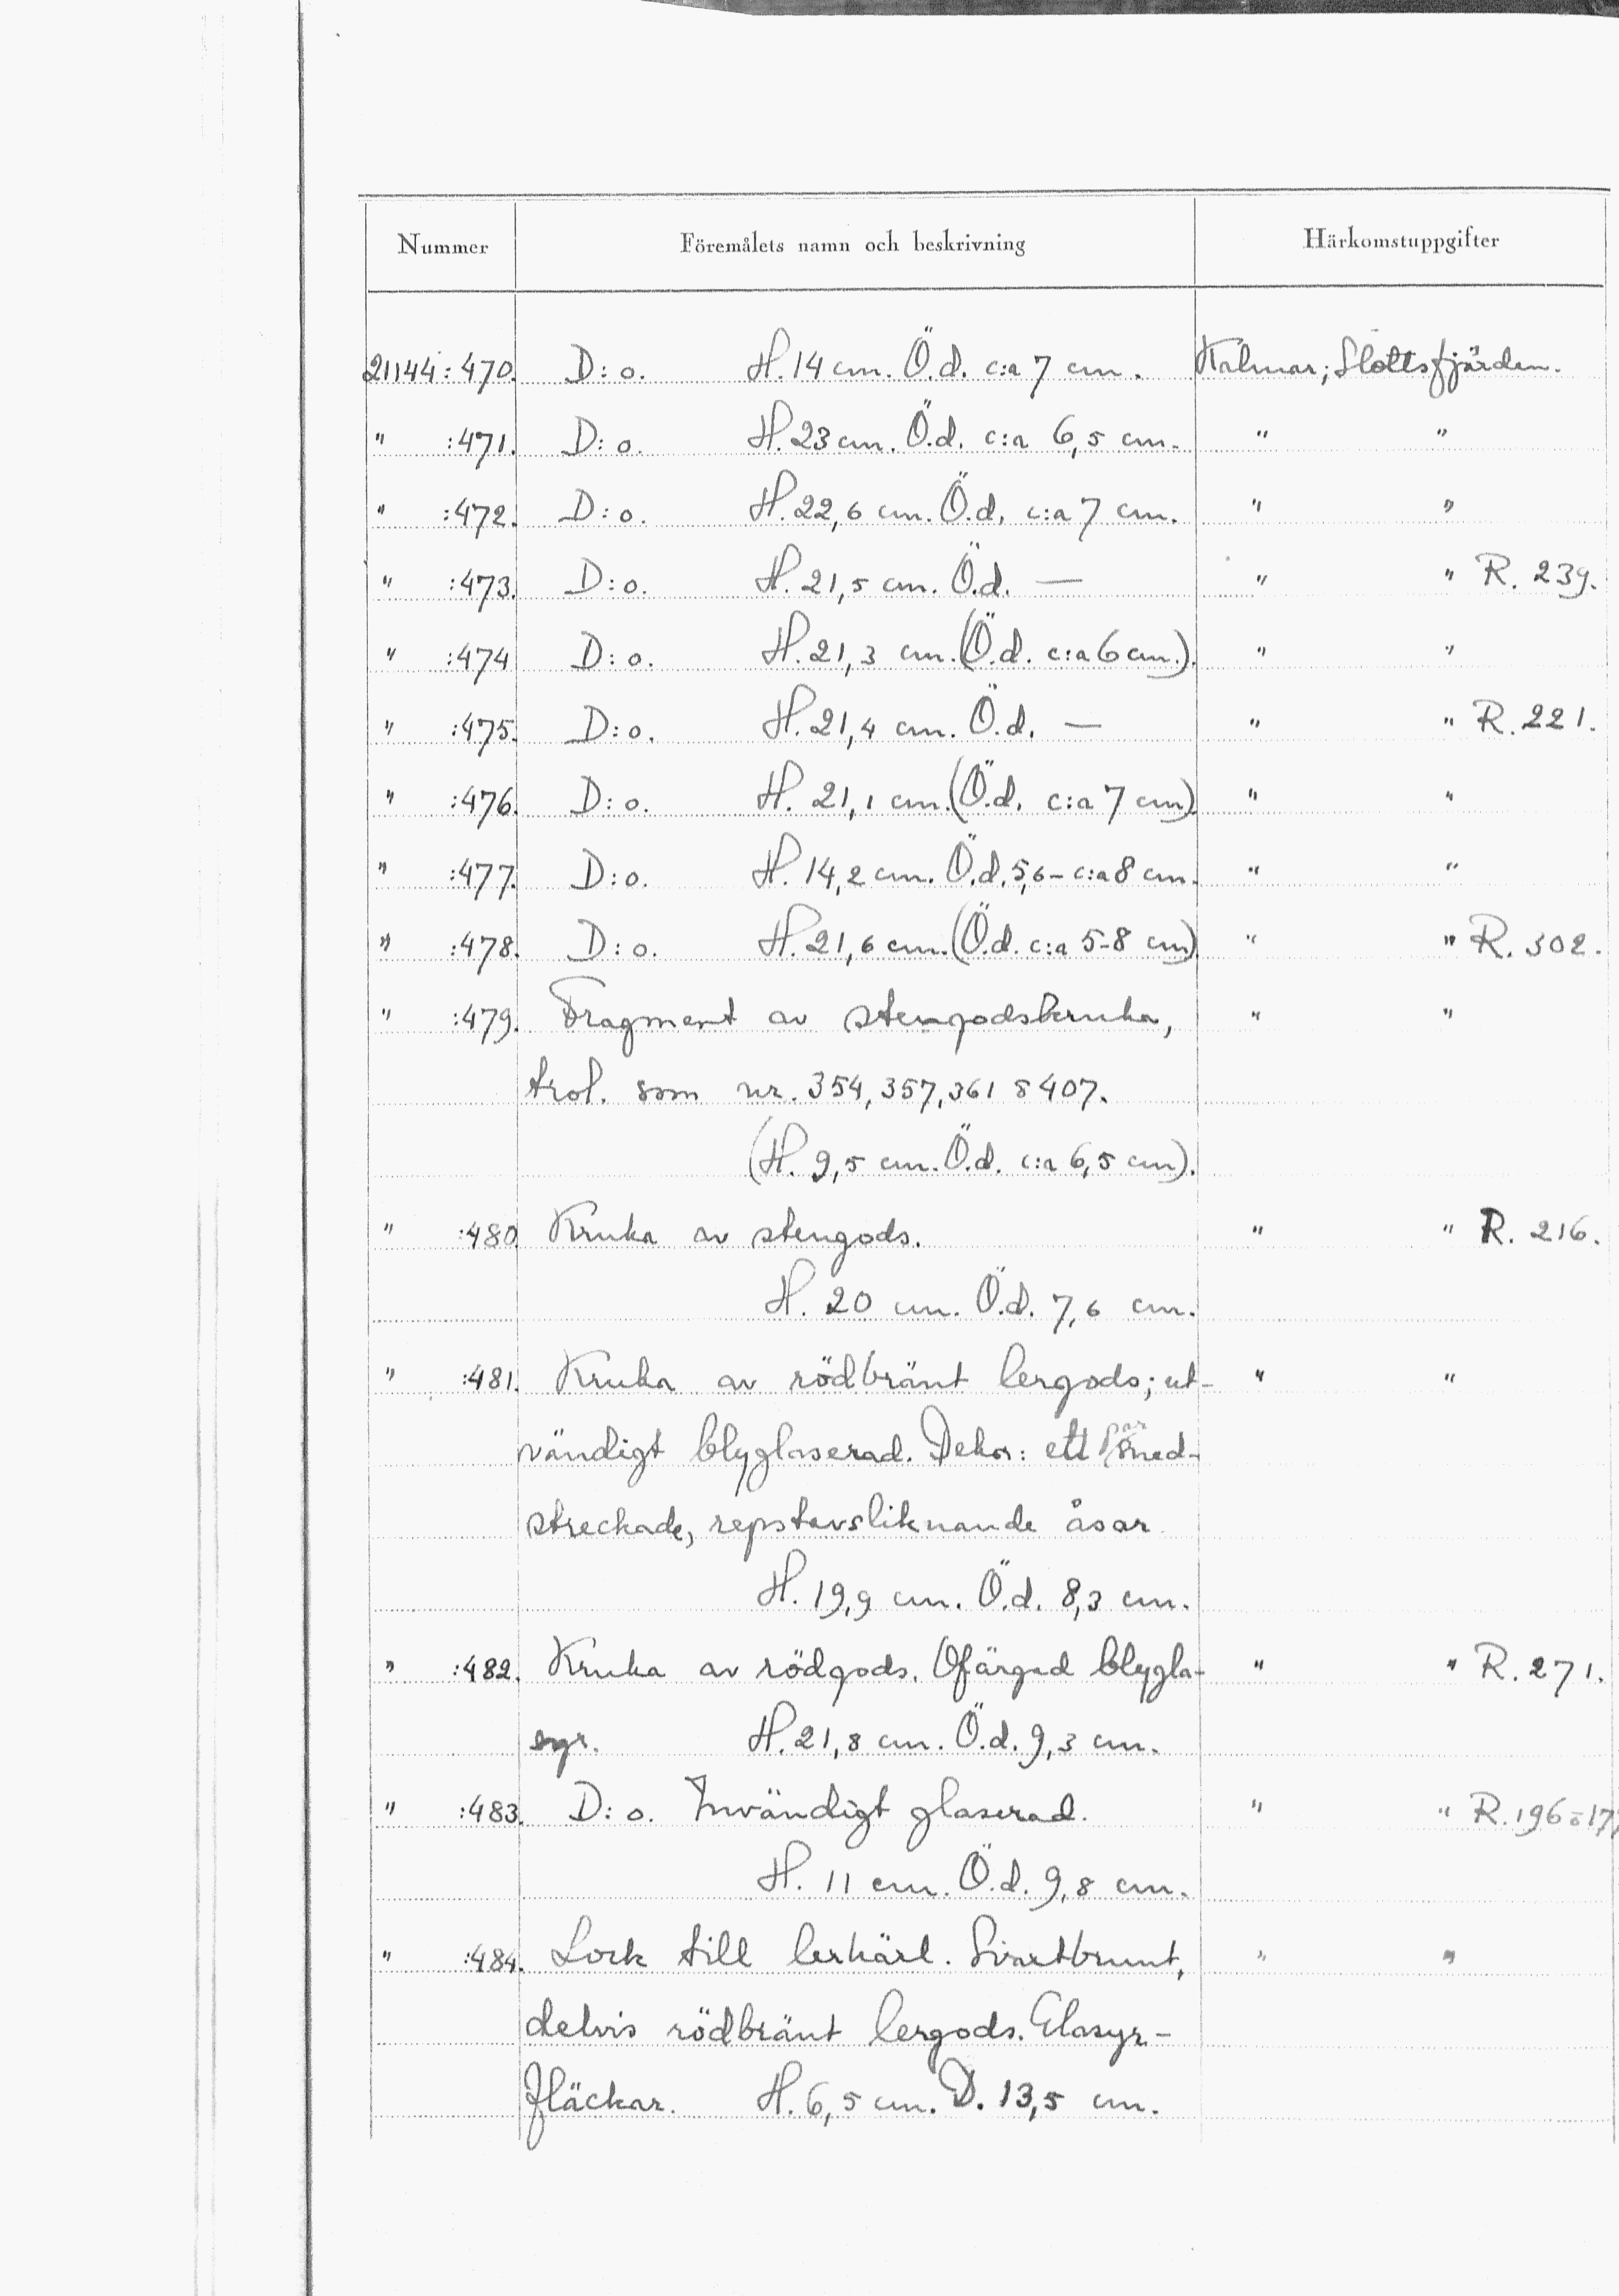 Nummer Föremålets namn och beskrivning Härkomstuppgifter
21144:470. D:o. H. 14 cm. Ö.d. c:a 7 cm. Kalmar; Slottsfjärden.
" :471. D:o. H. 23 cm. Ö.d. c:a 6,5 cm. " "
" :472. D:o. H. 22,6 cm. Ö.d. c:a 7 cm. " "
" :473. D:o. H. 21,5 cm. Ö.d. — " " R. 239.
" :474 D:o. H. 21,3 cm. (Ö.d. c:a 6 cm.). " "
" :475. D:o. H. 21,4 cm. Ö.d. — " " R. 221.
" :476. D:o. H. 21,1 cm. (Ö.d. c:a 7 cm). " "
" :477. D:o. H. 14,2 cm. Ö.d. 5,6 - c:a 8 cm. " "
" :478. D:o. H. 21,6 cm. (Ö.d. c:a 5-8 cm) " " R. 302.
" :479. Fragment av stengodskruka, " "
trol. som nr. 354, 357, 361 & 407.
(H. 9,5 cm. Ö.d. c:a 6,5 cm).
" :480. Kruka av stengods. " " R. 216.
H. 20 cm. Ö.d. 7,6 cm.
" :481. Kruka av rödbränt lergods; ut- " "
vändigt blyglaserad. Dekor: ett par sned-
streckade, repstavsliknande åsar
H. 19,9 cm. Ö.d. 8,3 cm.
" :482. Kruka av rödgods. Ofärgad blygla- " " R. 271.
syr. H. 21,8 cm. Ö.d. 9,3 cm.
" :483. D:o. Invändigt glaserad. " " R. 196 o 177
H. 11 cm. Ö.d. 9,8 cm.
" :484. Lock till lerkärl. Svartbrunt, " "
delvis rödbränt lergods. Glasyr-
fläckar. H. 6,5 cm. D. 13,5 cm.